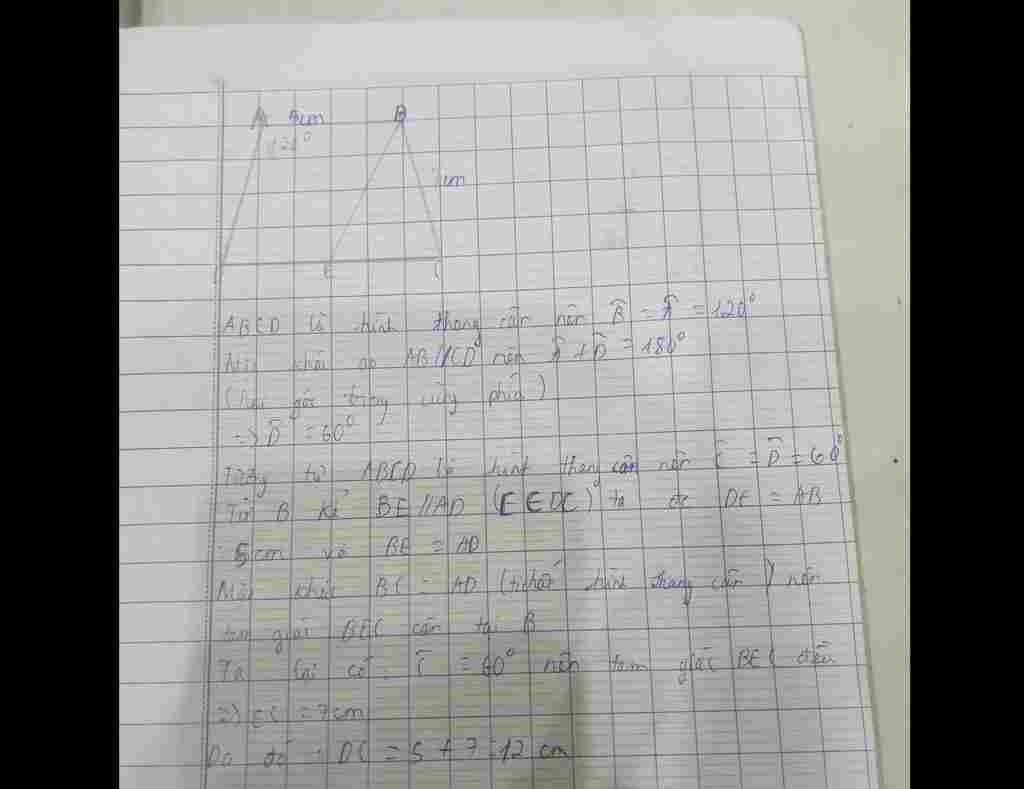 A 5cm B
120°
cm
E C
ABCD là hình thang cân nên B̂ = Â = 120°
Mặt khác do AB//CD nên Â + D̂ = 180°
(hai góc trong cùng phía)
=> D̂ = 60°
ABCD là hình thang cân nên Ĉ = D̂ = 60°
Từ B kẻ BE//AD (E∈DC) ta đc DE = AB
5cm và BE = AD
Mặt khác BC = AD (t/chất hình thang cân) nên
tam giác BEC cân tại B
Ta lại có: Ĉ = 60° nên tam giác BEC đều
=> EC = 7cm
Do đó : DC = 5 + 7 = 12 cm